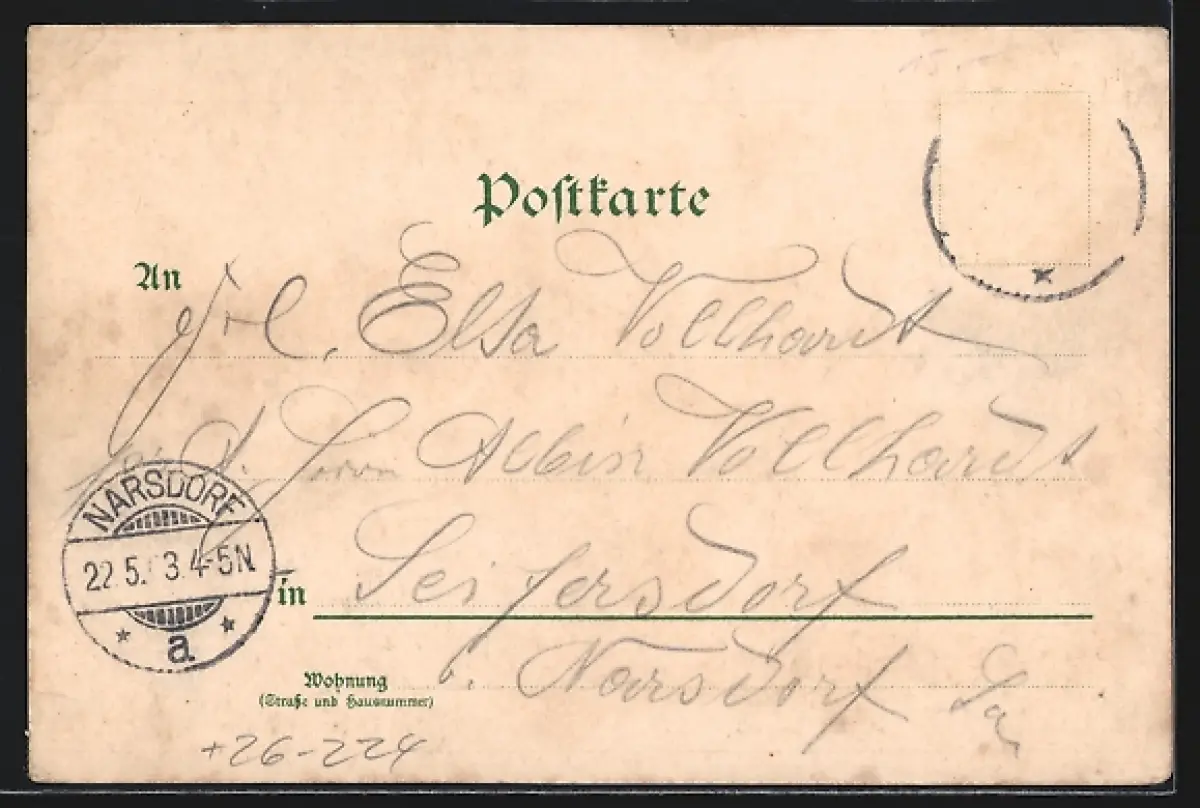 Postkarte
An
Frl. Elsa Vollhardt
Herrn Albin Vollhardt
NARSDORF
22.5. 3.4-5N.
a
in Seifersdorf
b. Narsdorf Sa
Wohnung
(Straße und Hausnummer)
+26-224